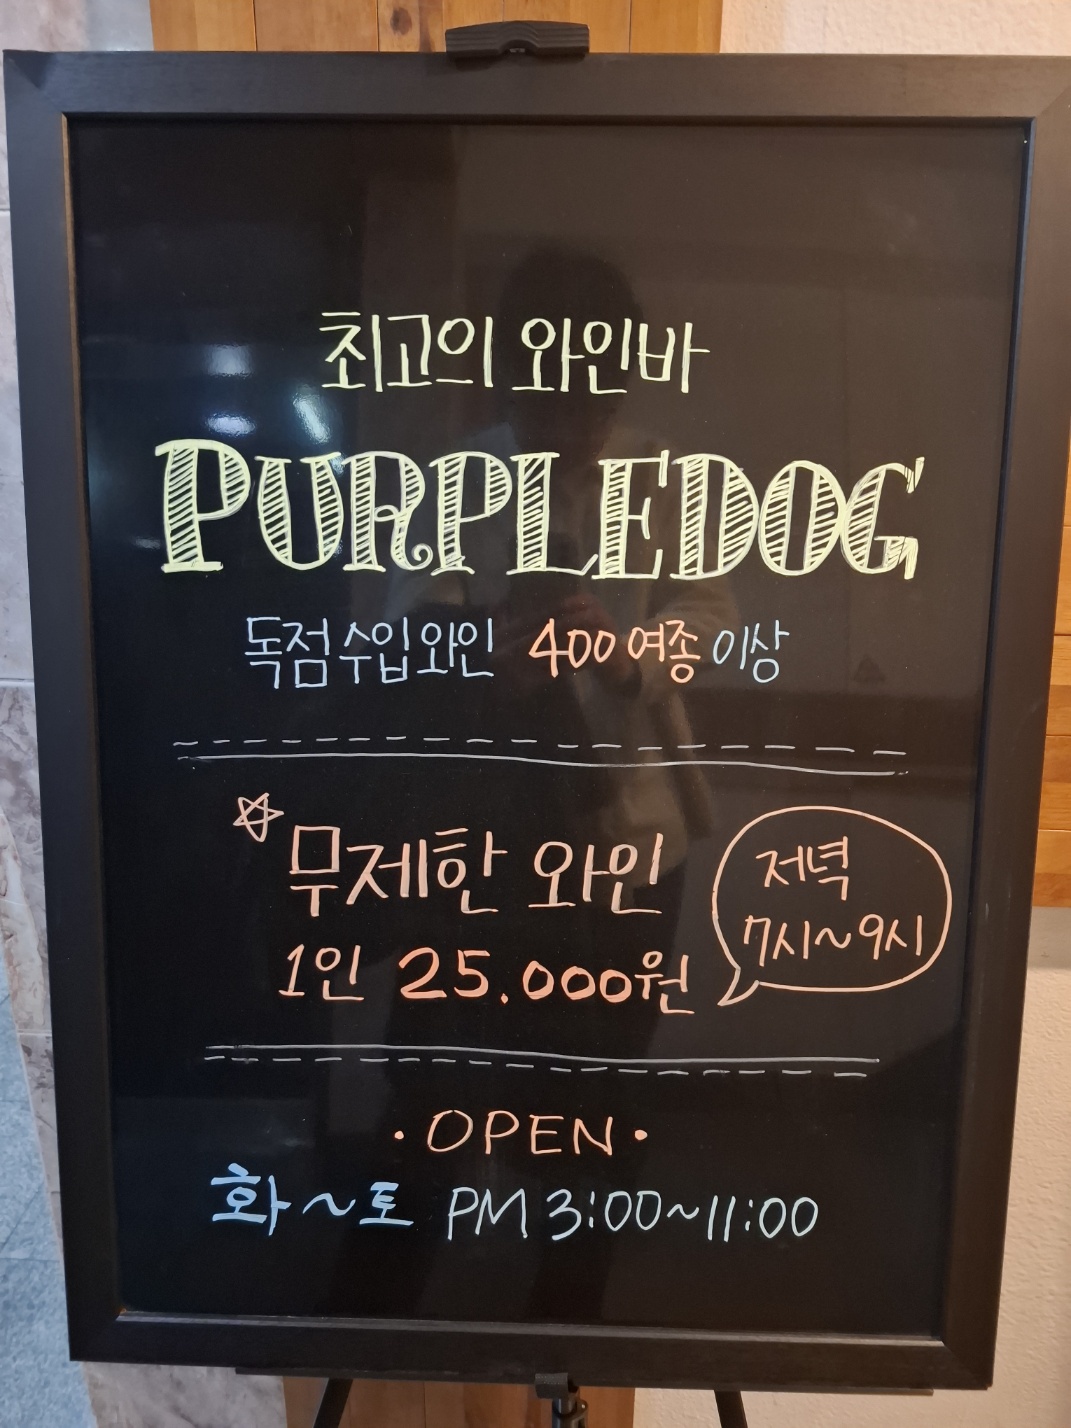 최고의 와인바
PURPLEDOG
독점수입와인 400여종 이상
무제한 와인
1인 25.000원
저녁
7시~9시
·OPEN·
화~토 PM 3:00~11:00